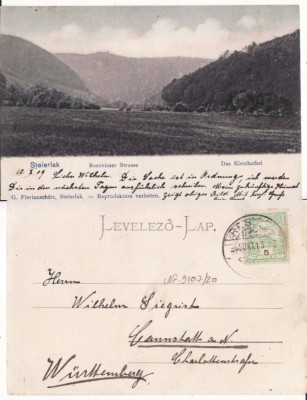 Steierlak Bozovicser Strasse Das Kirschathal
12. X 09 Lieber Wilhelm. Die Sache ist in Ordnung, ich werde
Die in den nächsten Tagen ausführlich schreiben. Meine zukünftige Heimat
G. Florianschütz, Steierlak. — Reproduktion verboten. zeigt obiges Bild.
LEVELEZŐ-LAP.
Herrn
№ 9107/20
Wilhelm Siegrist
Cannstatt a. N.
Charlottenstraße
Württemberg